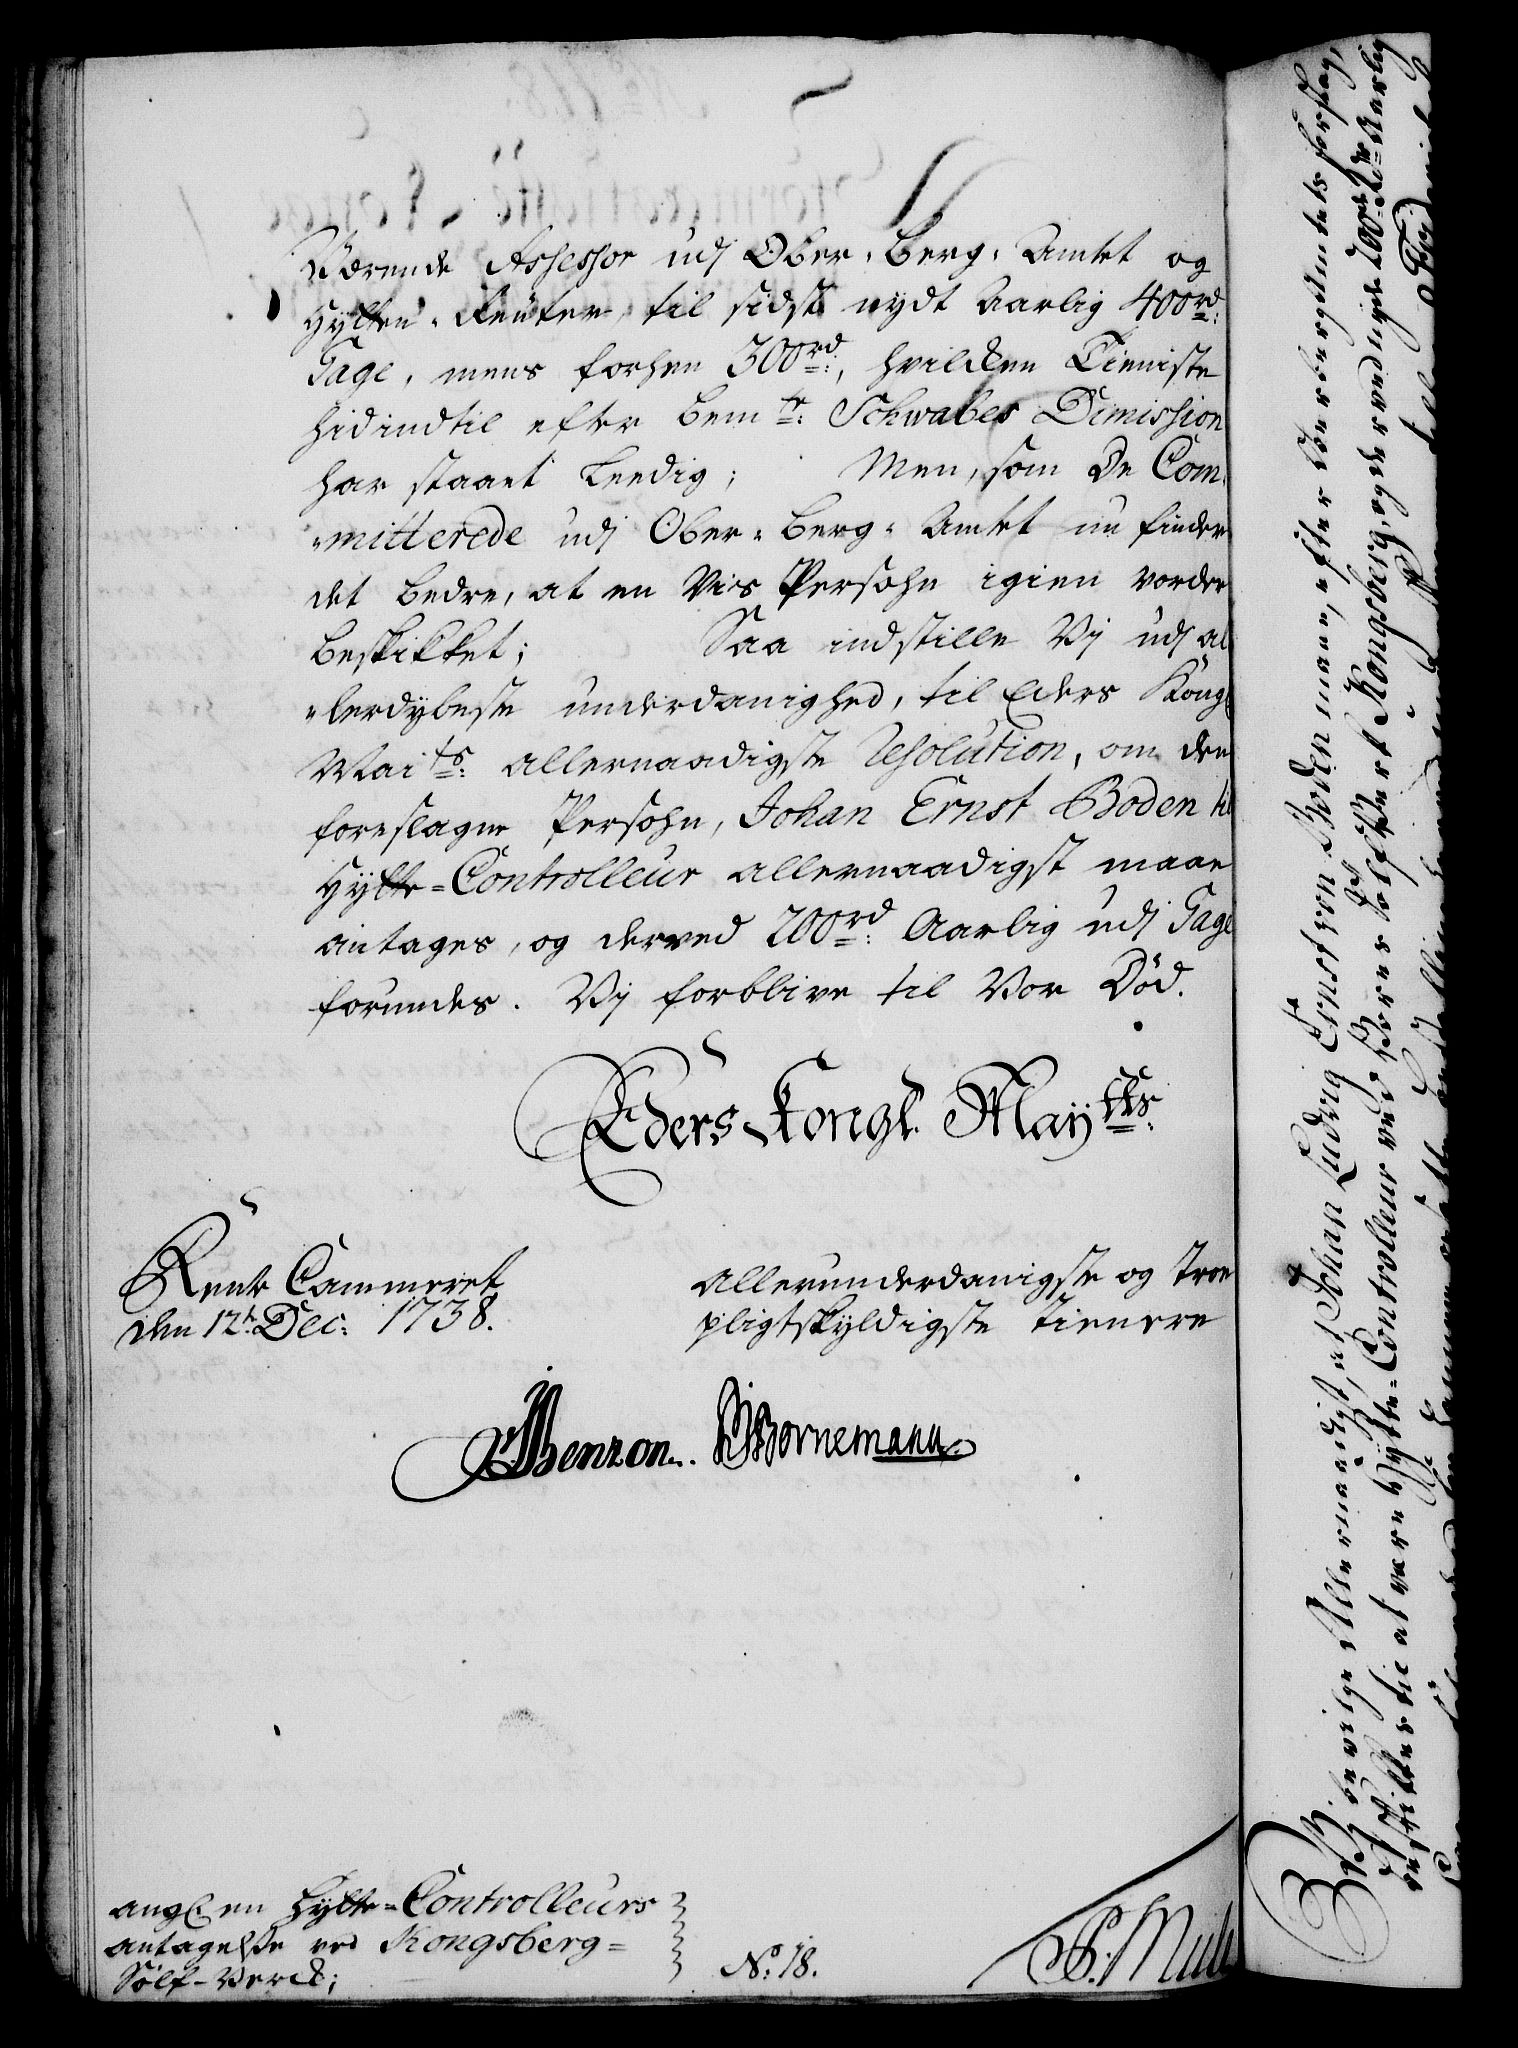 Værende Assessor udj Ober-Berg-Amtet og
Hytten-Reuter til sidst nydt Aarlig 400rd:
Gage, mens forhen 300rd:, hvilcken Tieniste
hidindtil efter bemte: Schwabes Dimission
har staaet Leedig; Men, som De Com-
-mitterede udj Ober-Berg-Amtet nu finder
det bedre, at en Vis Persohn igien vorder
beskikket; Saa indstille Vj udj al
-lerdybeste underdanighed, til Eders Kongl
Maits: allernaadigste Resolution, om den
foreslagne Persohn, Johan Ernst Boden til
Hytte-Controlleur allernaadigst maae
antages, og derved 200rd: Aarlig udj Gage
forundes. Vj forblive til Vor Död.
Eders Kongl. Maytts:
Rente Cammeret
den 12t Dec: 1738.
Allerunderdanigste og troe
pligtskyldigste Tienere
Benzon. Bornemann
angl: en Hytte-Controlleurs
antagelse ved Kongsberg-
Sölf-Verck;
No: 18.
Vj bevilge Allernaadigst, at Johan Ludvig Ernst von Boden maae, efter Ober Berg Amtets Forslag,
bestilles til at være Hytte-Controlleur ved Vores Sölf Verk Kongsberg, og derved nyde 200 Rdr Aarlig